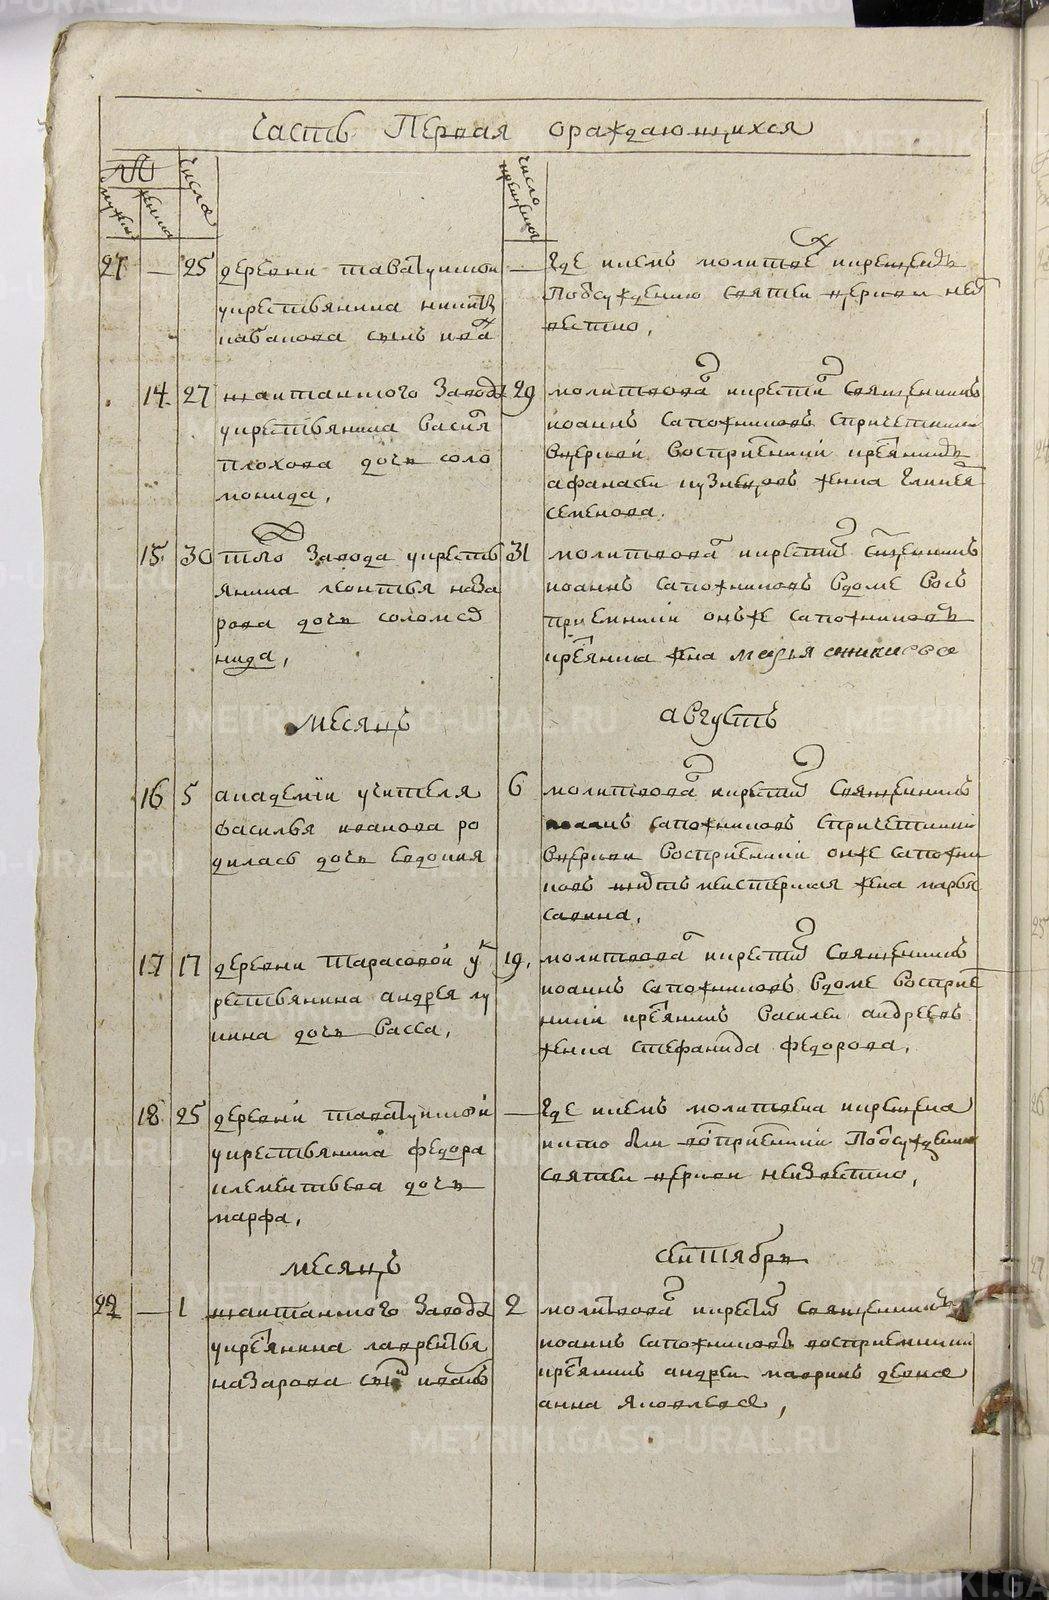 Часть Первая ораждающихся
№
мужска
женска
числа
число крещения
21 — 25 деревни таватуиской
укрестьянина никиты
кабакова сынъ ива
— Где кнемъ молитве икрещенъ
Пообсуждению святеи церкви неи
вестно,
14 27 шаитанского Завода
укрестьянина Васил
плохова дочь соло
монида,
29 молитвова икрести Священникъ
иоаннъ сапожниковъ спричетники
вцеркви восприемники крестьянинъ
афанасеи кузнецовъ жена гликея
семенова.
15 30 того Завода укресть
янина леонтья наза
рова дочь соломо
нида,
31 молитвова икрести Священникъ
иоаннъ сапожниковъ вдоме вось
приемники онъже сапожниковъ
крестьянка жена марья
месяцъ августъ
16 5 академiи учителя
василья иванова ро
дилась дочь евдокия
6 молитвова икрести Священникъ
иоаннъ сапожниковъ спричетники
вцеркви восприемники онже сапожни
ковъ жена марья
савина,
17 17 деревни Тарасовой ук
рестьянина андрея лу
кина дочь васса,
19, молитвова икрести Священникъ
иоаннъ сапожниковъ вдоме восприе
мники крестьянинъ василеи андреевъ
жена стефанида федорова,
18 25 деревни таватуиской
укрестьянина федора
клементьева дочь
марфа,
— Где кнемъ молитвена икрещена
икто были восприемники Пообсуждению
святеи церкви неизвестно,
месяцъ сентябрь
22 — 1 шаитанского Завода
укрестьянина лаврентья
назарова сынъ иванъ
2 молитвова икрести Священникъ
иоаннъ сапожниковъ восприемники
крестьянинъ андреи мавринъ девка
анна яковлева,
METRIKI.GASO-URAL.RU